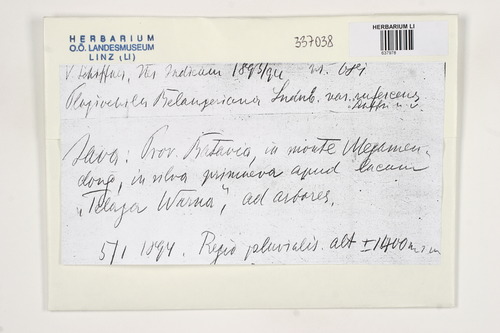 HERBARIUM
O.Ö. LANDESMUSEUM
LINZ (LI)
337038
HERBARIUM LI
V. Schiffner, Iter Indicum 1893/94
Plagiochila Belangeriana Lindnb. var. rufescens
Schffn. n. v.
Java: Prov. Batavia, in monte Megamen-
dong, in silva primaeva apud lacum
"Telaga Warna", ad arbores,
5/1 1894. Regio pluvialis. alt ±1400 m s m